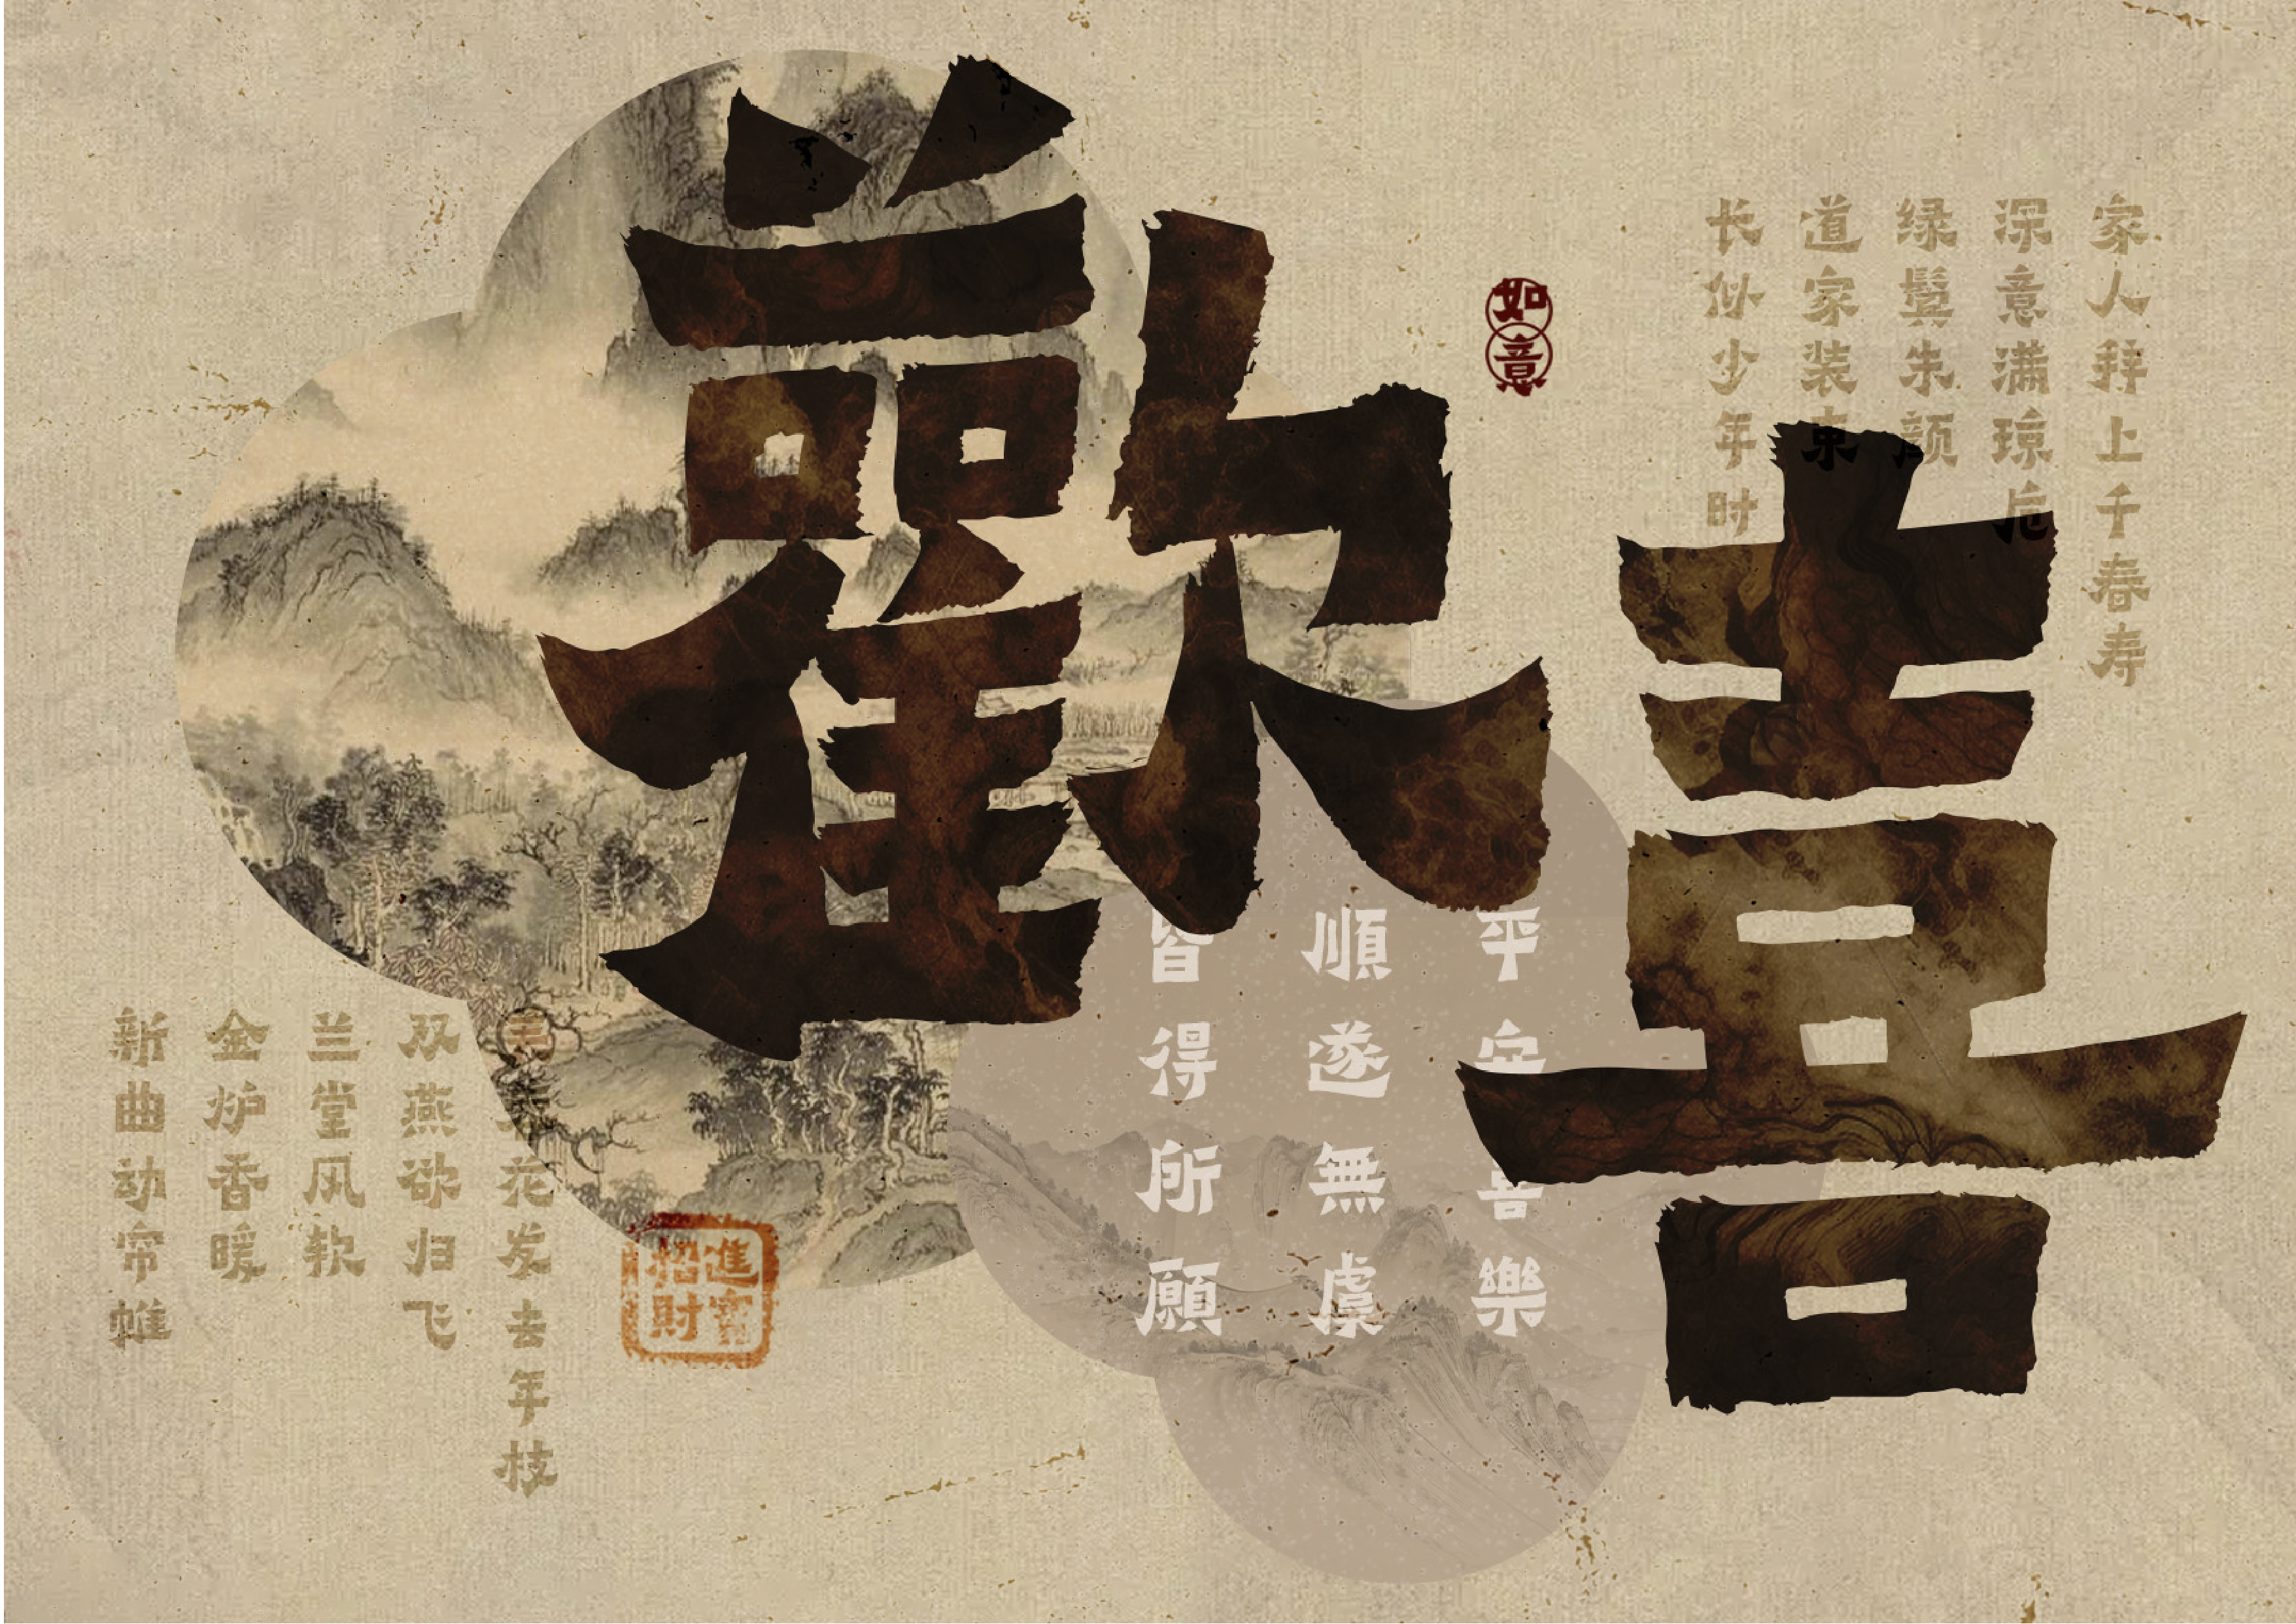 歡喜
如意
家人拜上千春寿
深意满琼卮
绿鬓朱颜
道家装束
长似少年时
平安喜樂
順遂無虞
皆得所願
花发去年枝
双燕欲归飞
兰堂风软
金炉香暖
新曲动帘帷
招財進寶